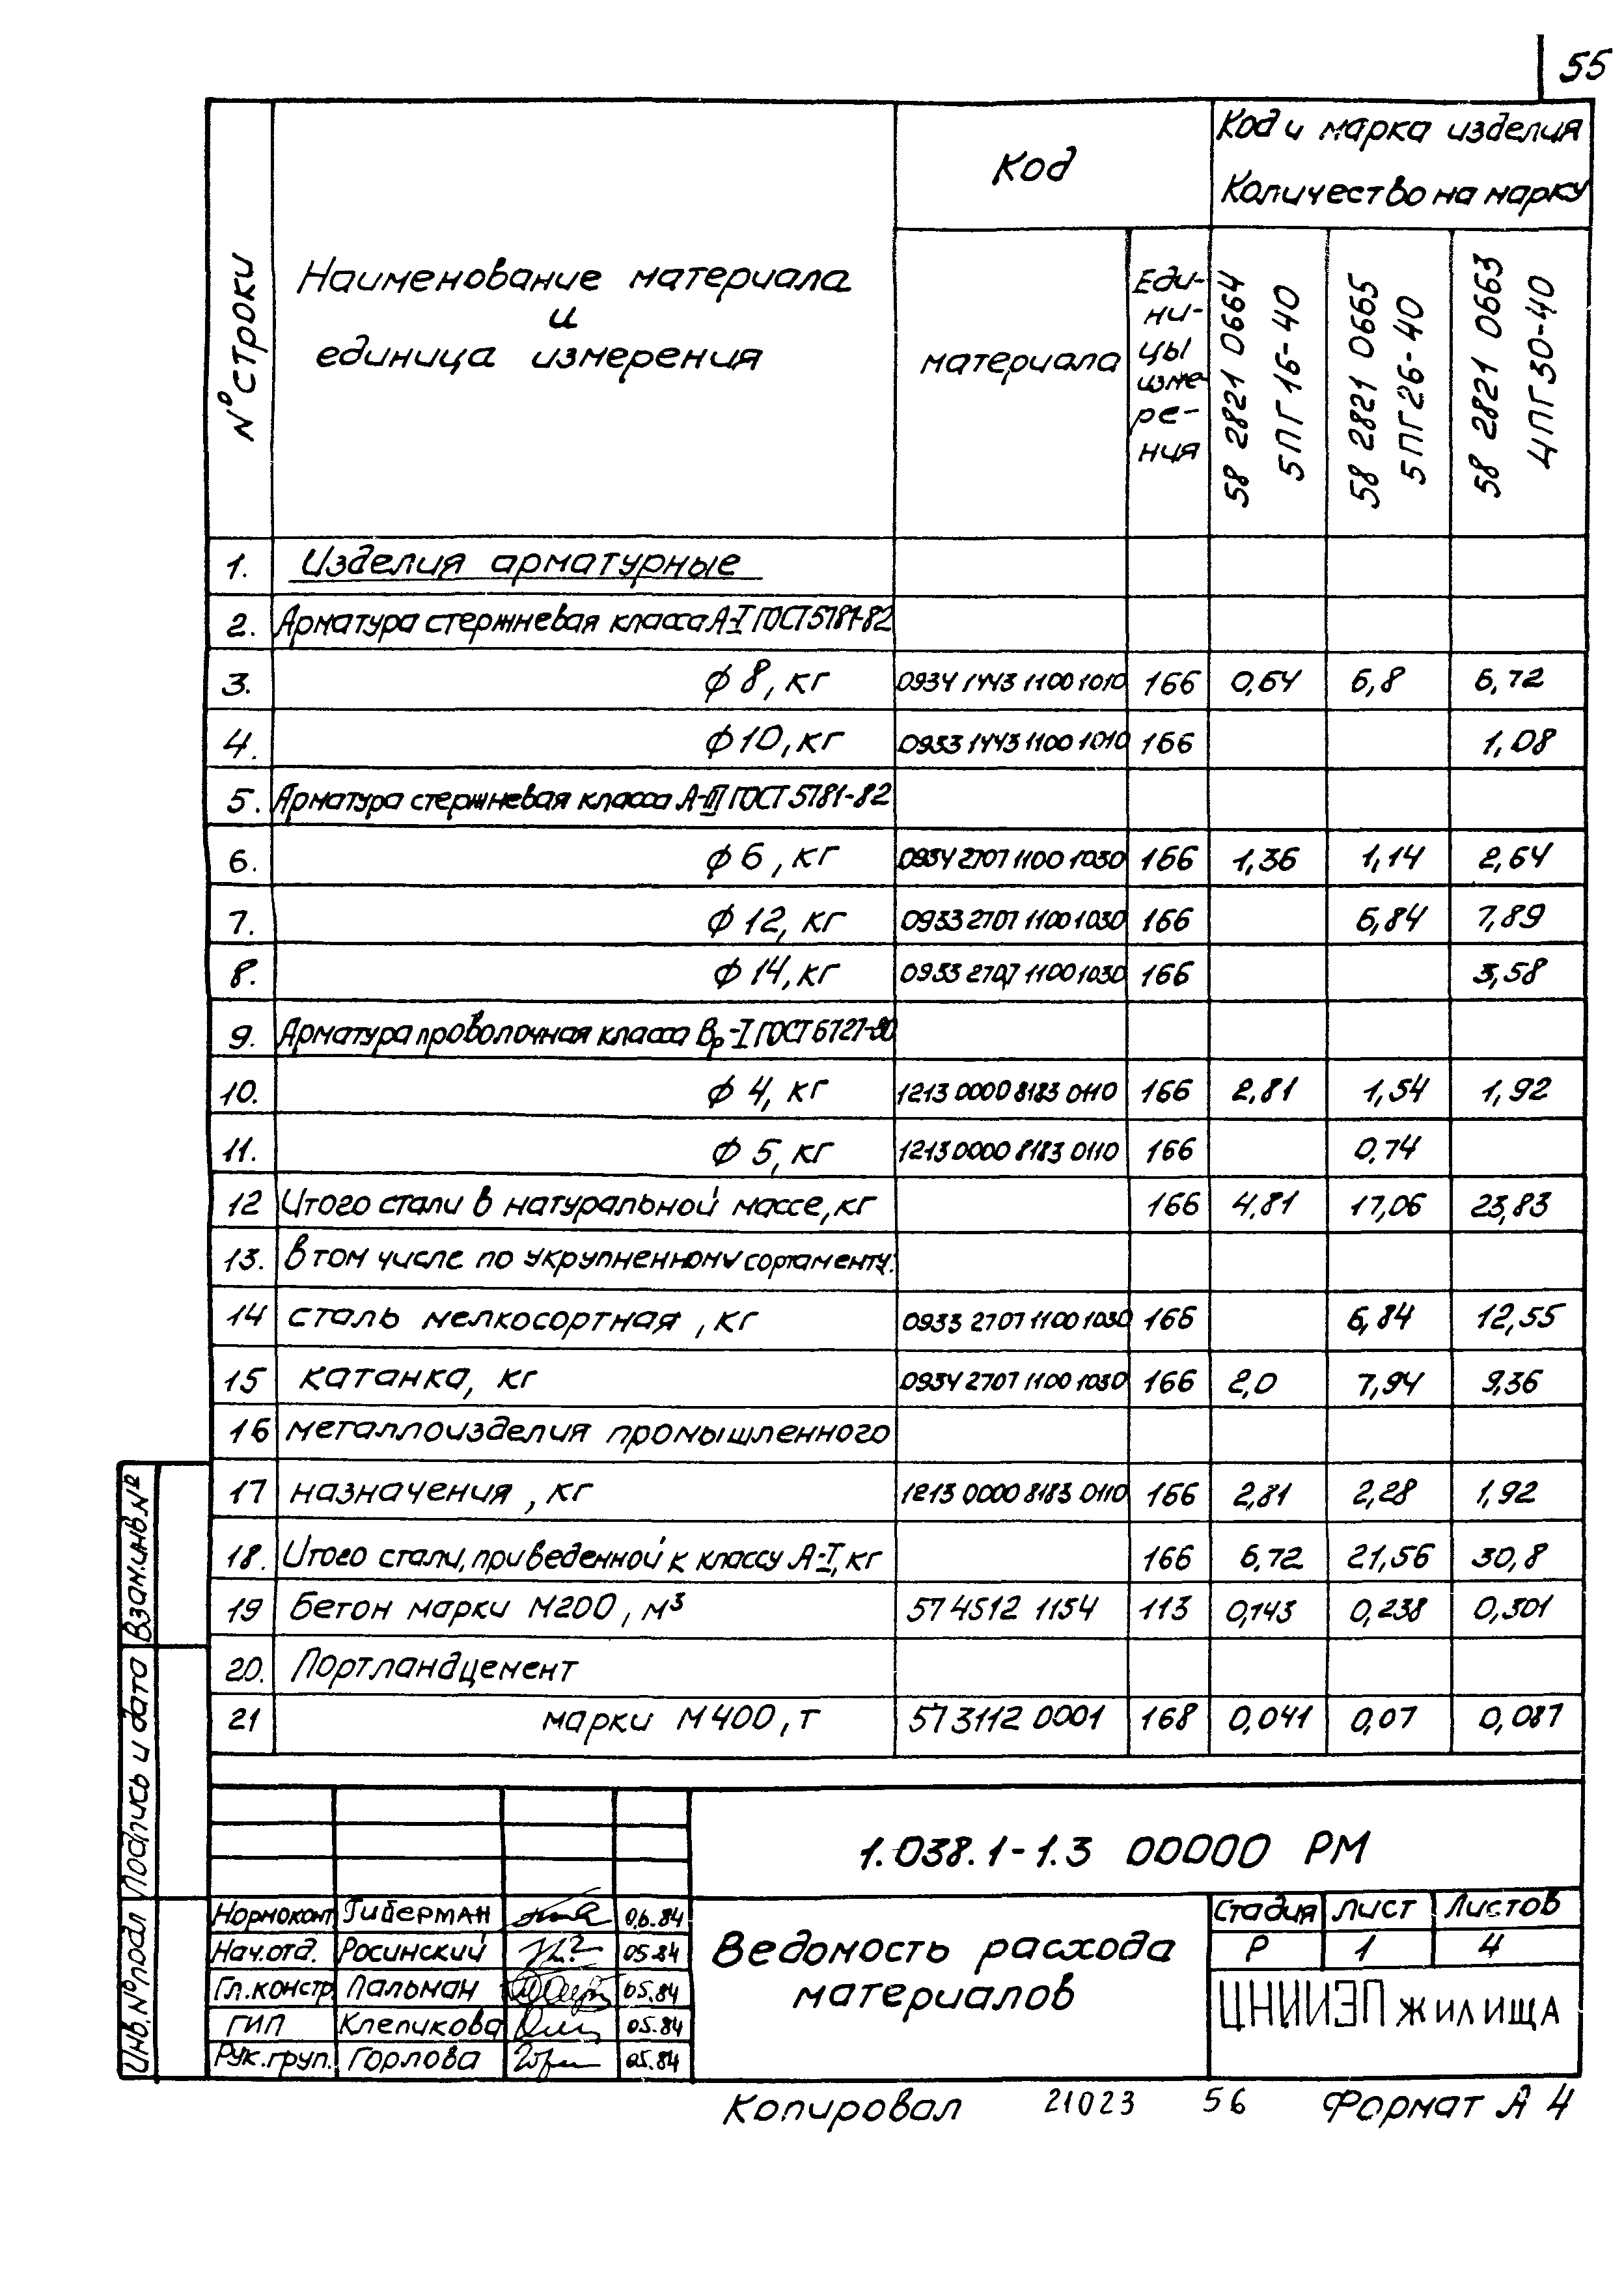 55
№ строки
Наименование материала
и
единица измерения
Код
Код и марка изделия
Количество на марку
материала
Еди-
ни-
цы
изме
ре-
ния
58 2821 0664
5ПГ16-40
58 2821 0665
5ПГ26-40
58 2821 0663
ЦПГ30-40
1. Изделия арматурные
2. Арматура стержневая класса А-I ГОСТ 5781-82
3. ф 8, кг 0934 1443 1100 1010 166 0,64 6,8 6,72
4. ф 10, кг 0933 1443 1100 1010 166 1,08
5. Арматура стержневая класса А-III ГОСТ 5781-82
6. ф 6, кг 0934 2707 1100 1030 166 1,36 1,14 2,64
7. ф 12, кг 0933 2707 1100 1030 166 6,84 7,89
8. ф 14, кг 0933 2707 1100 1030 166 3,58
9. Арматура проволочная класса Вр-I ГОСТ 6727-80
10. ф 4, кг 1213 0000 8183 0110 166 2,81 1,54 1,92
11. ф 5, кг 1213 0000 8183 0110 166 0,74
12 Итого стали в натуральной массе, кг 166 4,81 17,06 23,83
13. В том числе по укрупненному сортаменту:
14 сталь мелкосортная, кг 0933 2707 1100 1030 166 6,84 12,55
15 катанка, кг 0934 2707 1100 1030 166 2,0 7,94 9,36
16 металлоизделия промышленного
17 назначения, кг 1213 0000 8183 0110 166 2,81 2,28 1,92
18. Итого стали, приведенной к классу А-I, кг 166 6,72 21,56 30,8
19 Бетон марки М200, м³ 57 4512 1154 113 0,143 0,238 0,301
20. Портландцемент
21 марки М400, т 57 3112 0001 168 0,041 0,07 0,087
Взам.инв.№
Подпись и дата
Инв.№ подл
1.038.1-1.3 00000 РМ
Нормоконт Гиберман 06.84
Нач.отд. Росинский 05.84
Гл.констр. Пальман 05.84
ГИП Клепикова 05.84
Рук.груп. Горлова 05.84
Ведомость расхода
материалов
Стадия Лист Листов
Р 1 4
ЦНИИЭП жилища
Копировал 21023 56 Формат А4